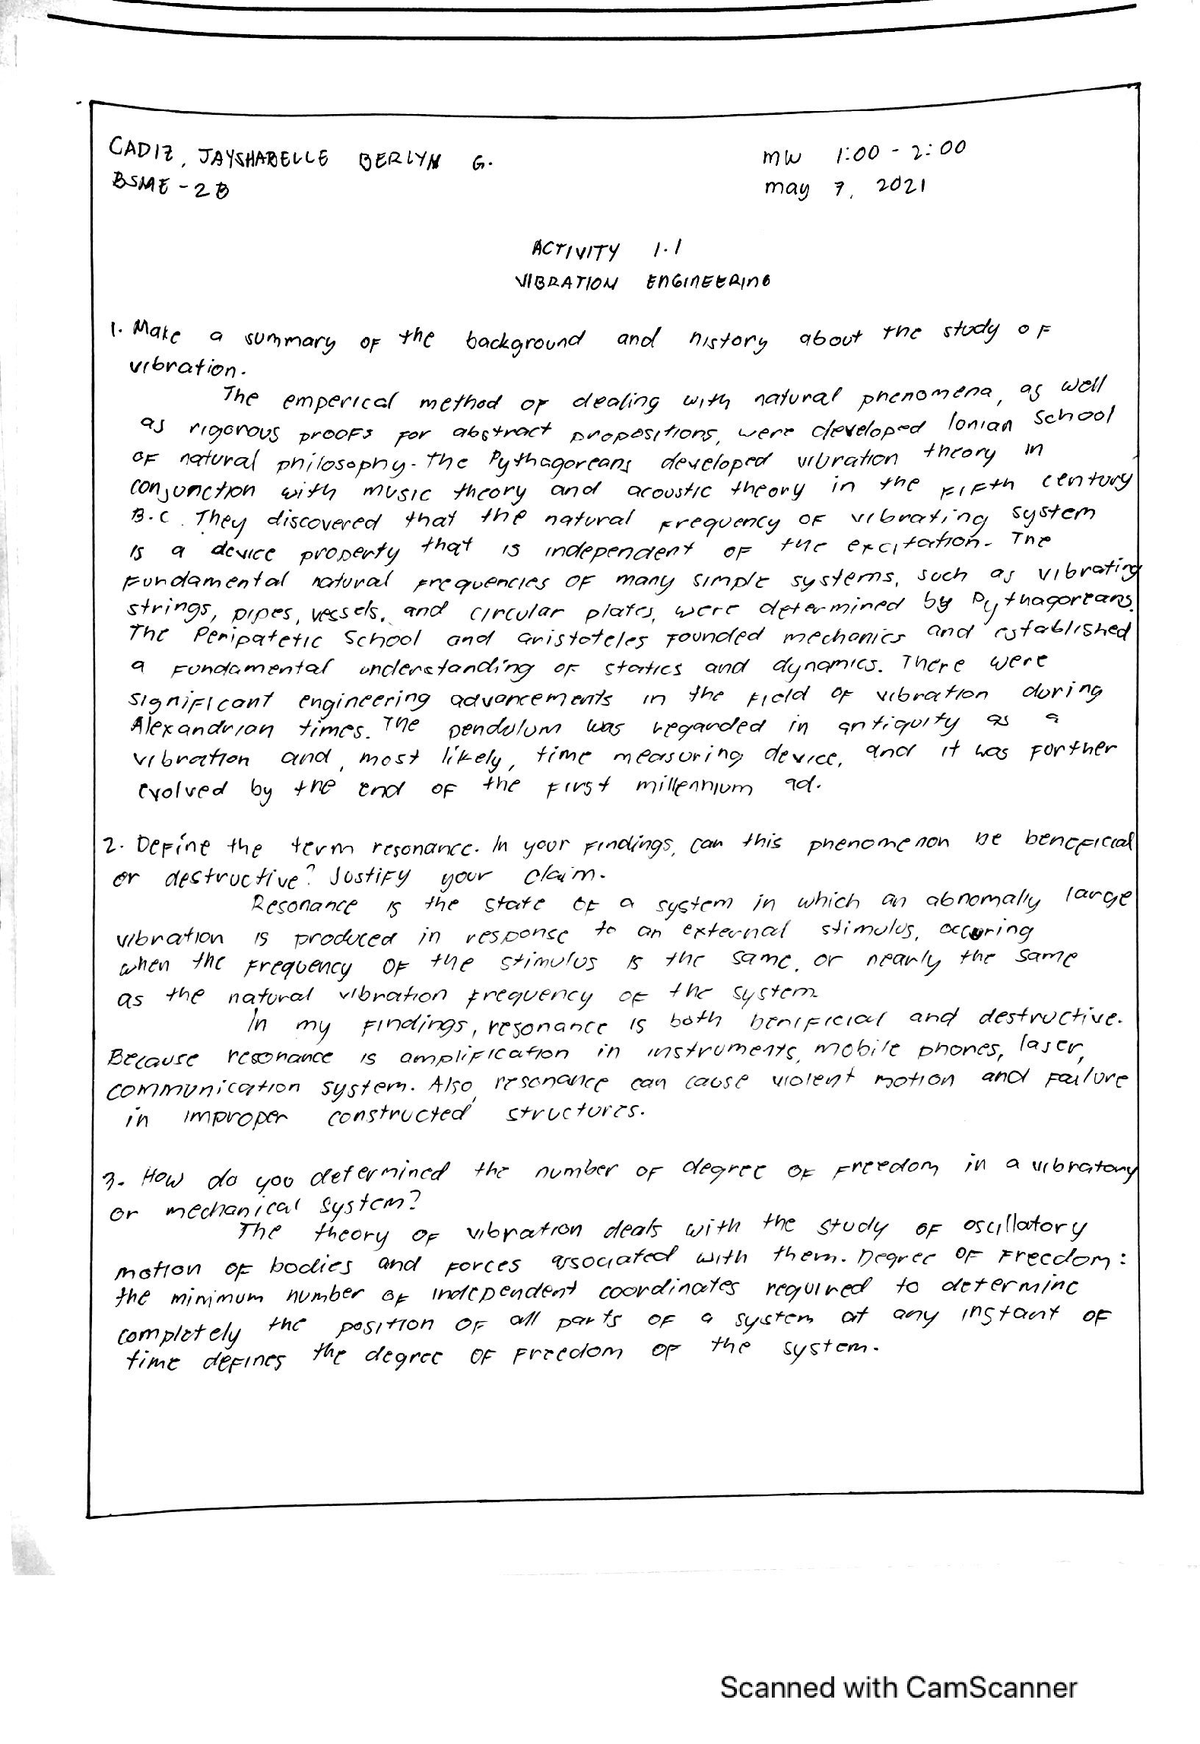 CADIZ, JAYSHABELLE BERLYN G.
MW 1:00 - 2:00
BSME - 2B
may 7, 2021
ACTIVITY 1.1
VIBRATION ENGINEERING
1. Make a summary of the background and history about the study of
vibration.
The emperical method of dealing with natural phenomena, as well
as rigorous proofs for abstract propositions, were developed Ionian School
of natural philosophy. The Pythagoreans developed vibration theory in
conjunction with music theory and acoustic theory in the fifth century
B.C. They discovered that the natural frequency of vibrating system
is a device property that is independent of the excitation. The
fundamental natural frequencies of many simple systems, such as vibrating
strings, pipes, vessels, and circular plates, were determined by Pythagoreans.
The Peripatetic School and aristoteles founded mechanics and established
a fundamental understanding of statics and dynamics. There were
significant engineering advancements in the field of vibration during
Alexandrian times. The pendulum was regarded in antiquity as a
vibration and, most likely, time measuring device, and it was further
evolved by the end of the first millennium ad.
2. Define the term resonance. In your findings, can this phenomenon be beneficial
or destructive? Justify your claim.
Resonance is the state of a system in which an abnomally large
vibration is produced in response to an external stimulus, occuring
when the frequency of the stimulus is the same, or nearly the same
as the natural vibration frequency of the system
In my findings, resonance is both benificial and destructive.
Because resonance is amplification in instruments, mobile phones, laser,
communication system. Also, resonance can cause violent motion and failure
in improper constructed structures.
3. How do you determined the number of degree of freedom in a vibratory
or mechanical system?
The theory of vibration deals with the study of oscillatory
motion of bodies and forces associated with them. Degree of Freedom:
the minimum number of independent coordinates required to determine
completely the position of all parts of a system at any instant of
time defines the degree of freedom of the system.
Scanned with CamScanner